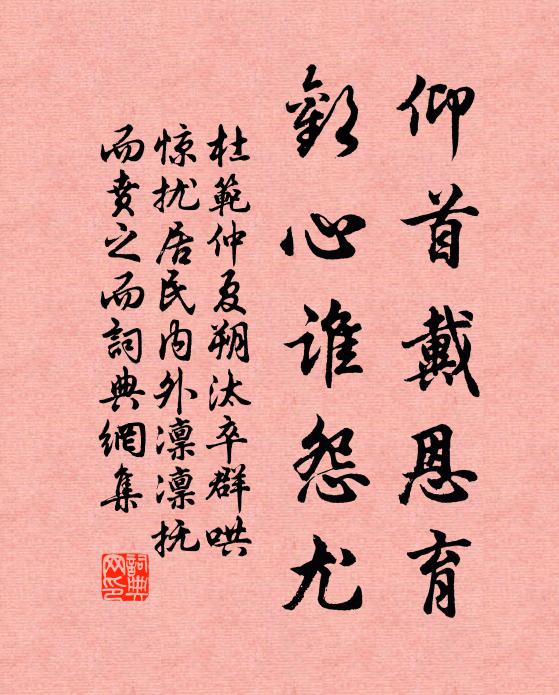 仰首戴恩育
歡心谁怨尤
杜範仲夏朔汰卒群哄
惊扰居民内外凛凛抚
而賁之而詞典網集
詞典网印